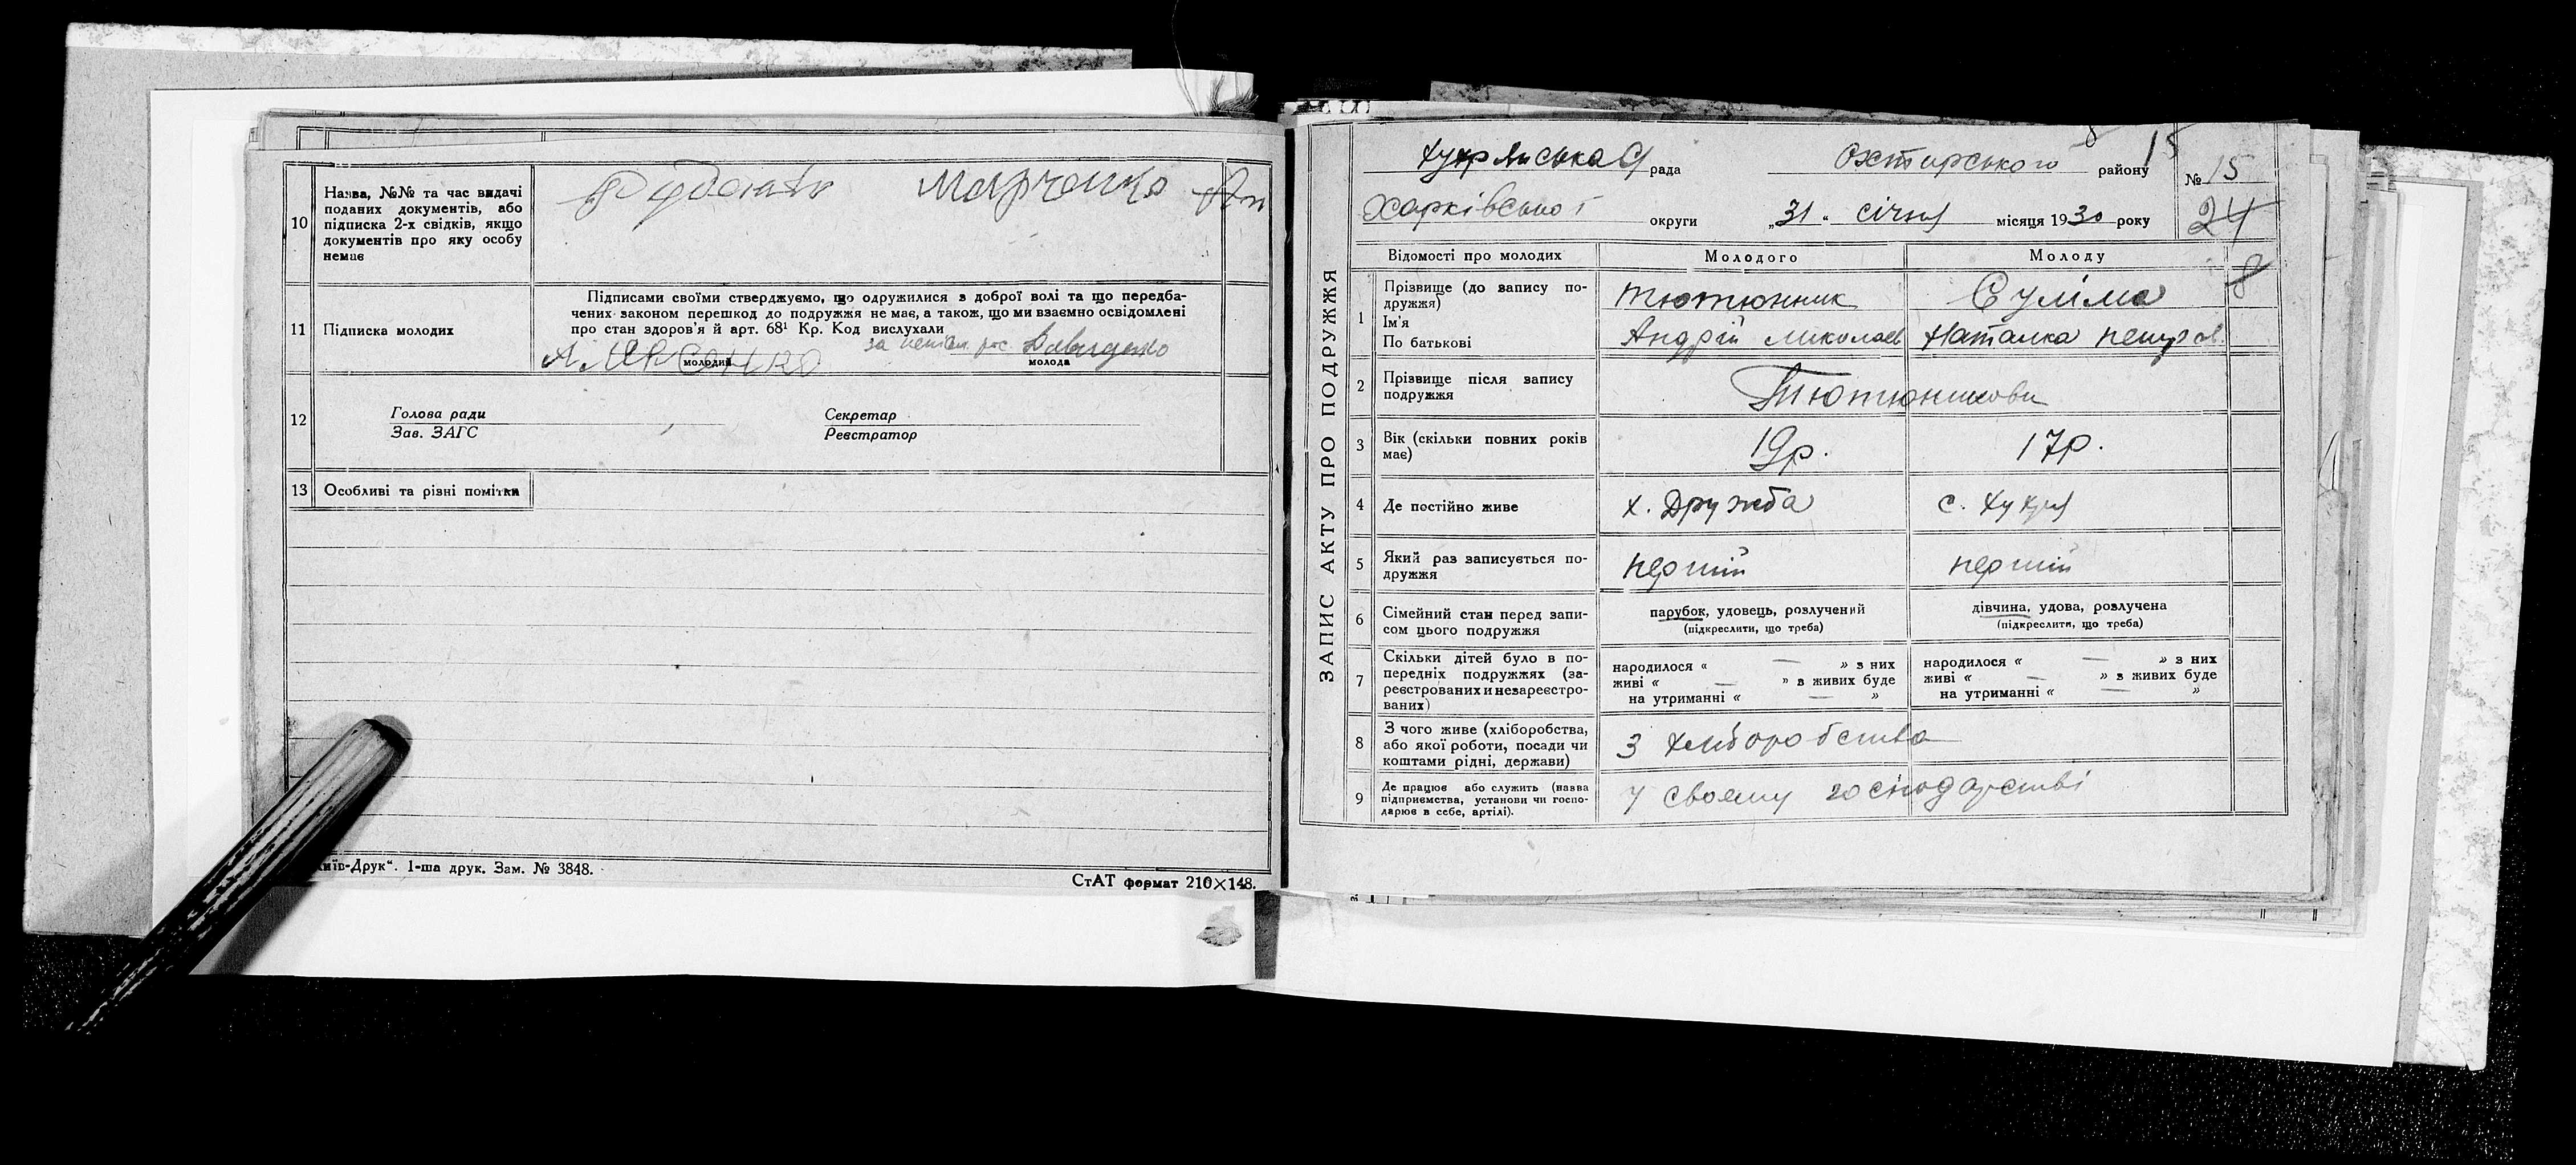 10
Назва, №№ та час видачі
поданих документів, або
підписка 2-х свідків, якщо
документів про яку особу
немає
Марченко
11
Підписка молодих
Підписами своїми стверджуємо, що одружилися з доброї волі та що передба-
чених законом перешкод до подружжя не має, а також, що ми взаємно освідомлені
про стан здоров'я й арт. 68¹ Кр. Код вислухали
за Давиденко
молодий
молода
12
Голова ради
Зав. ЗАГС
Секретар
Реєстратор
13
Особливі та різні помітки
Київ-Друк“. 1-ша друк. Зам. № 3848.
СтАТ формат 210×148.
ЗАПИС АКТУ ПРО ПОДРУЖЖЯ
рада Охтирського району 15
№ 15
Харківської округи „31“ січня місяця 1930 року
24
Відомості про молодих
Молодого
Молоду
8
1
Прізвище (до запису по-
дружжя)
Ім'я
По батькові
Тютюнник
Андрій Миколаєв
Суліма
Наталка Петров
2
Прізвище після запису
подружжя
Тютюникови
3
Вік (скільки повних років
має)
19р.
17р.
4
Де постійно живе
х. Дружба
с. Хухря
5
Який раз записується по-
дружжя
перший
перший
6
Сімейний стан перед запи-
сом цього подружжя
парубок, удовець, розлучений
(підкреслити, що треба)
дівчина, удова, розлучена
(підкреслити, що треба)
7
Скільки дітей було в по-
передніх подружжях (за-
реєстрованих и незареєстро-
ваних)
народилося « — » з них
живі « — » з живих буде
на утриманні « — »
народилося « — » з них
живі « — » з живих буде
на утриманні « — »
8
З чого живе (хліборобства,
або якої роботи, посади чи
коштами рідні, держави)
З хліборобства
9
Де працює або служить (назва
підприємства, установи чи госпо-
дарює в себе, артілі).
У своєму господарстві